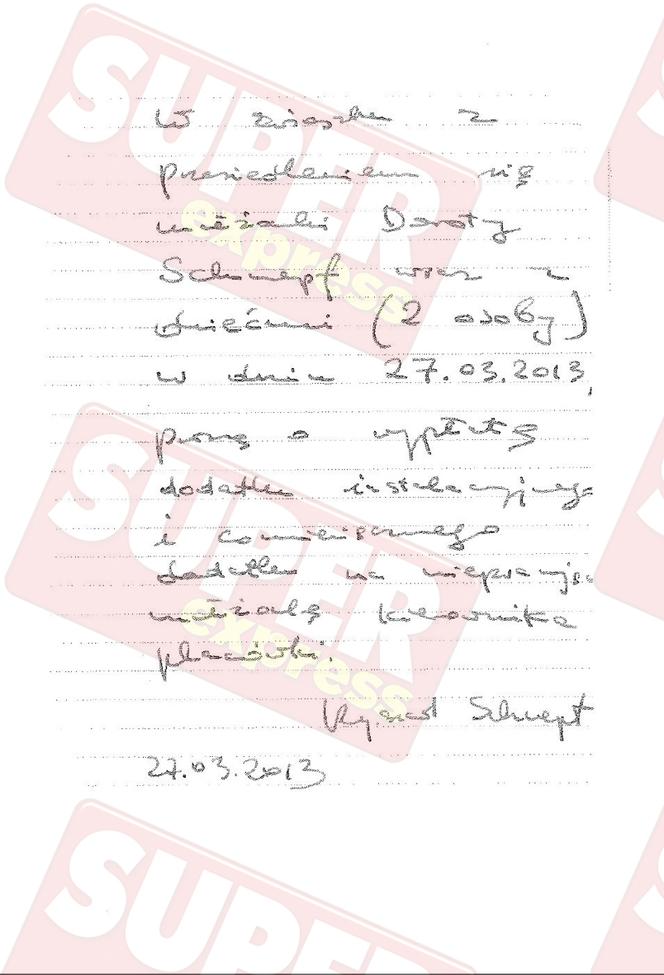 W związku z
przesiedleniem się
małżonki Doroty
Schnepf wraz z
dziećmi (2 osoby)
w dniu 27.03.2013,
proszę o wypłatę
dodatku instalacyjnego
i comiesięcznego
dodatku na niepracującą
małżonkę kierownika
placówki.
Ryszard Schnepf
27.03.2013
SUPER
express
SUPER
express
SUPER